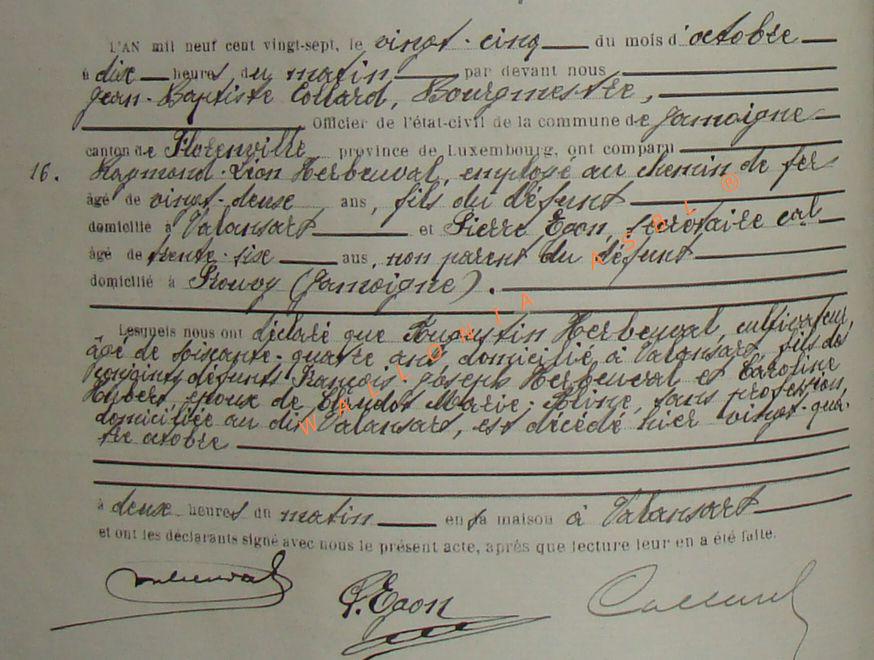 L'AN mil neuf cent vingt-sept, le vingt-cinq du mois d'octobre
à dix heures du matin par devant nous
Jean-Baptiste Collard, Bourgmestre,
Officier de l'état-civil de la commune de Jamoigne
canton de Florenville province de Luxembourg, ont comparu
16. Raymond-Léon Herbeuval, employé au chemin de fer
âgé de vingt-deux ans, fils du défunt
domicilié à Valansart et Pierre Egon, secrétaire cal
âgé de trente-six ans, non parent du défunt
domicilié à Prouvy (Jamoigne).
Lesquels nous ont déclaré que Augustin Herbeuval, cultivateur,
âgé de soixante-quatre ans domicilié à Valansart, fils de
conjoints défunts François Joseph Herbeuval et Caroline
Hubert époux de Claudot Marie-Aline, sans profession,
domiciliée au dit Valansart, est décédé hier vingt-qua-
tre octobre
à deux heures du matin en sa maison à Valansart
et ont les déclarants signé avec nous le présent acte, après que lecture leur en a été faite.
P. Egon
WALLONIA ASBL ®